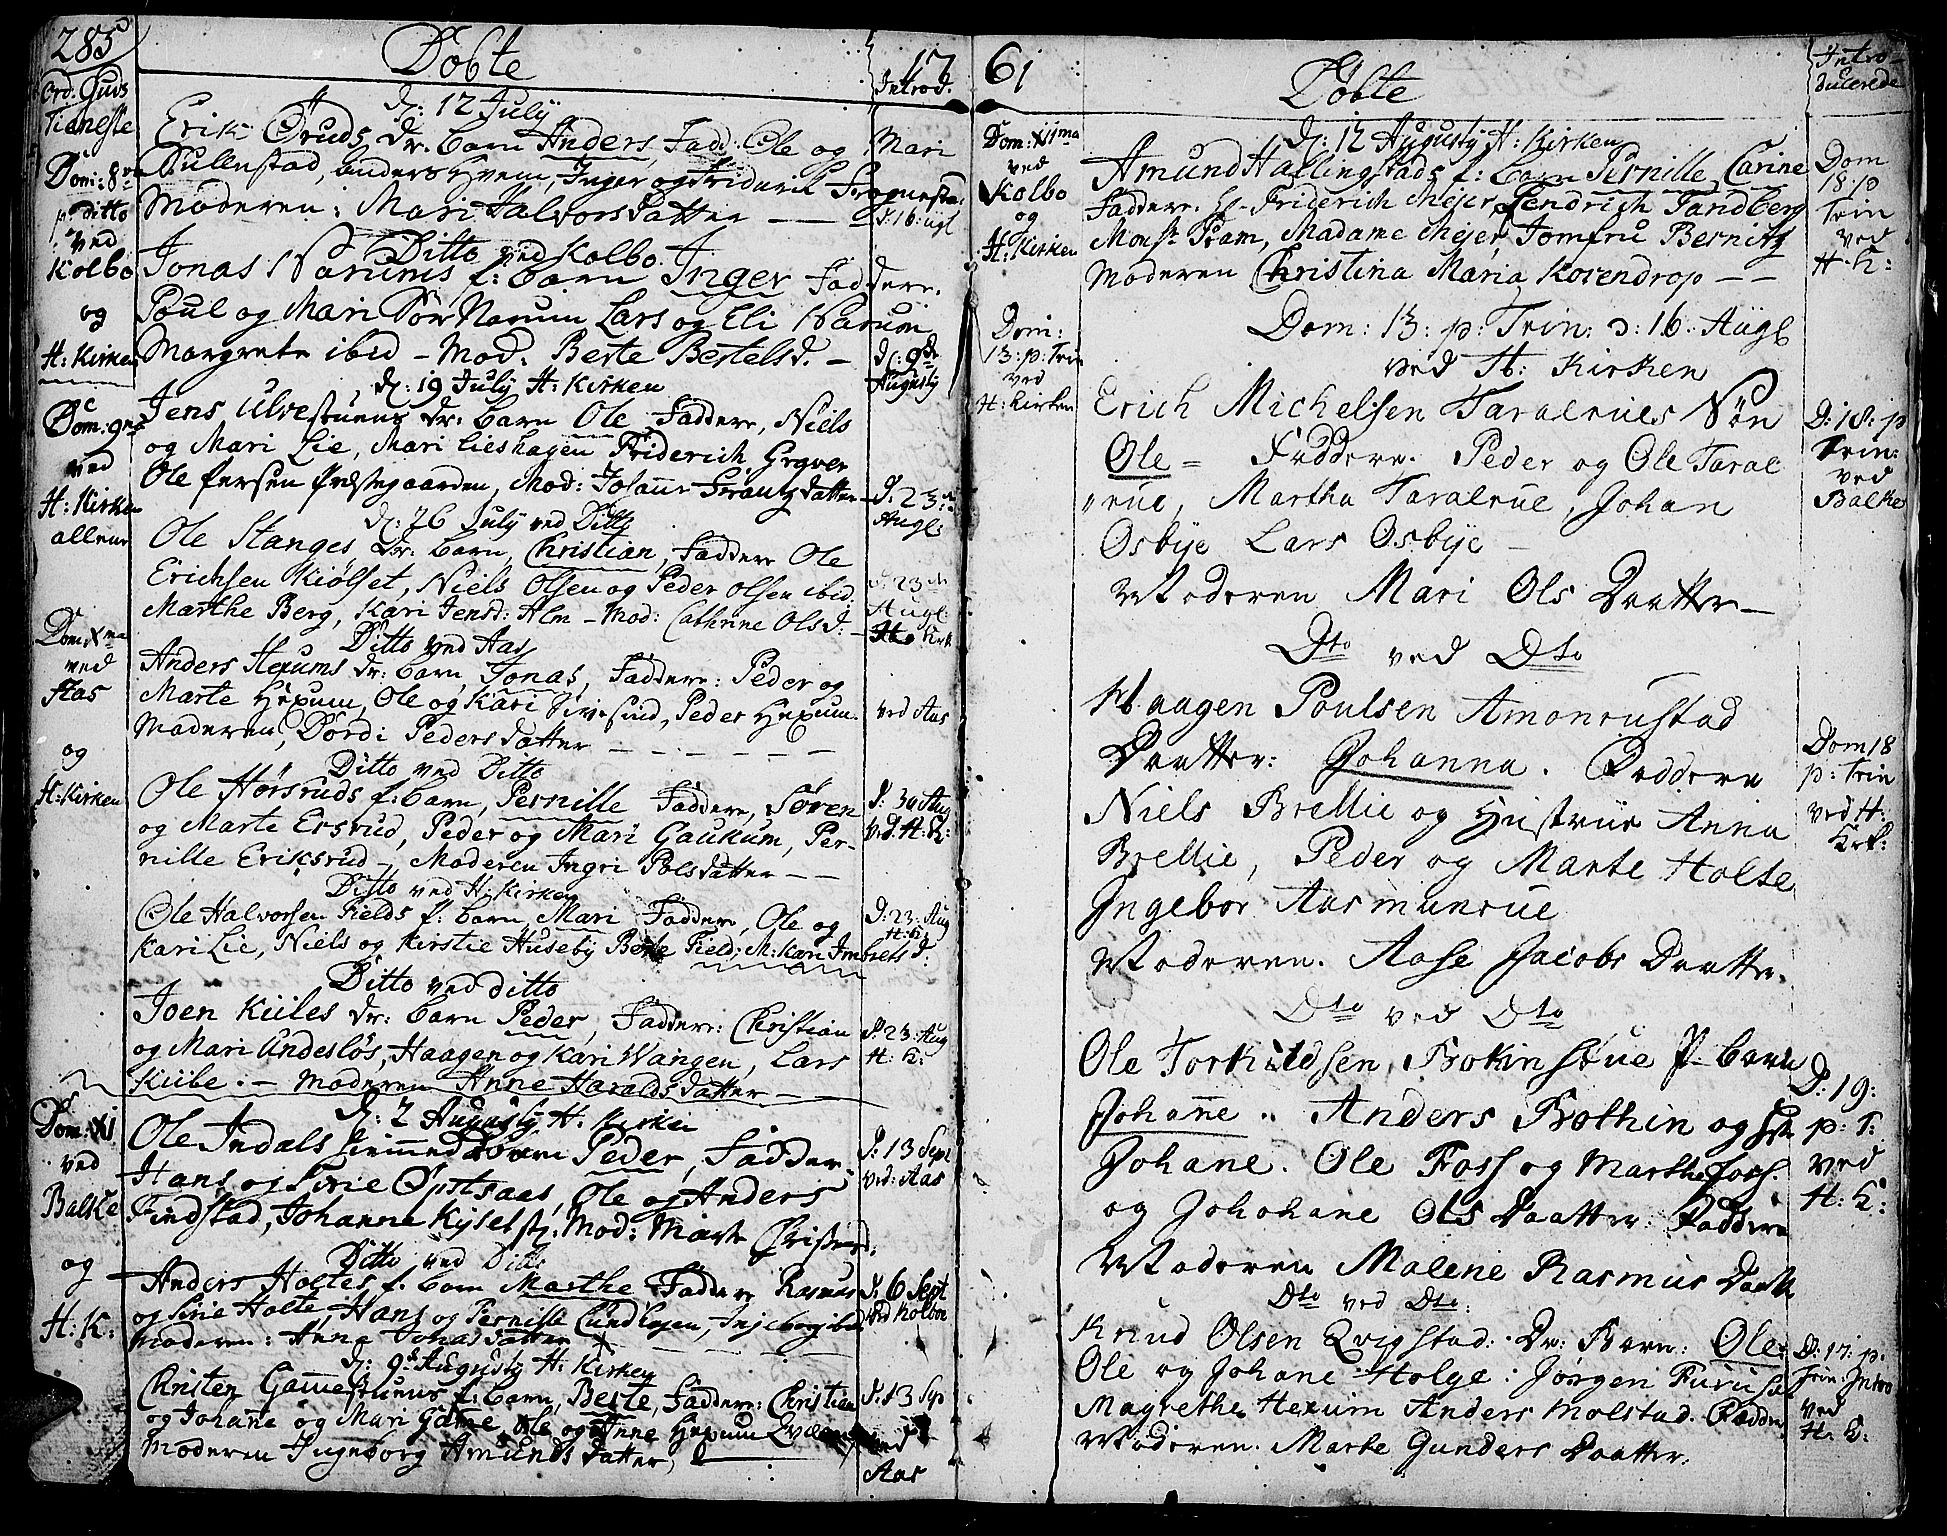 285
Döbte
17
Introd.
Ord. Guds
Tieneste
Dom: 8
p: ditto
ved
Kolbo
og
H: Kirken
D: 12 July
Erik Öruds, dr. barn Anders, Fadd: Ole og Mari
Sullenstad, Anders Hveem, Inger og Friderich
Moderen: Mari Halvorsdatter
Ditto ved Kolbo
Jonas Narums f: barn Inger Faddere:
Poul og Mari Sör Narum Lars og Eli Narum
Margrete ibid - Mod: Berte Bertelsd. -
D: 9de
Augusty
D: 19 July H: Kirken
Dom: 9na
ved
H: Kirken
allene
Jens Ulvestuens dr: barn Ole, Faddere, Niels
og Mari Lie, Mari Lieshagen Friderich Grøver
Ole Persen Præstegaarden, Mod: Johanne Frantzdatter
D. 23
Aug:
D: 26 July ved Ditto
Ole Stanges dr: barn, Christian, Faddere Ole
Erichsen Kiölset, Niels Olsen og Peder Olsen ibid.
Marthe Berg, Kari Jensd: Alm - Mod: Cathrine Olsd:
D. 23
Aug:
H: Kirk
Dom: Xma
ved
Aas
og
H: Kirken
Ditto ved Aas
Anders Hexums dr: barn, Jonas, Faddere: Peder og
Marte Hexum, Ole og Kari Sivesind, Peder Hexum.
Moderen, Dordi Pedersdatter - - - - -
ved Aas
Ditto ved Ditto
Ole Hörsruds f: barn, Pernille Faddere, Sören
og Marte Ersrud, Peder og Mari Gaukum, Per-
nille Eriksrud -, Moderen Ingri Polsdatter - -
D: 30 Aug
ved H: K:
Ditto ved H: Kirken
Ole Halvorsen Fields f: barn Mari Faddere, Ole og
Kari Lie, Niels og Kirstie Huseby Berte Field: M: Kari Imbretsd:
D: 23: Aug
H: K:
Ditto ved ditto
Joen Kiiles dr: barn Peder, Faddere: Christian
og Mari Undeslös, Haagen og Kari Wangen, Lars
Kiile: - Moderen Anne Haraldsdatter -
D: 23: Aug
H: K:
Dom: XI
ved
Balke
og
H: K:
D: 2 Augusty H: Kirken
Ole Indals hiemmedöbte Peder, Faddere
Hans og Siri Öpstsaas, Ole og Anders
Findstad, Johanne Kyset : Mod: Marte Christensd:
D: 13 Sept
ved: Aas
Ditto ved Ditto
Anders Holtes f. barn Marthe Faddere Rasmus
og Siri Holte, Hans og Pernille Lundhagen, Ingeborg ibid
Moderen: Anne Jonasdatter
D: 6 Sept
ved Kolboe
D: 9de Augusty H: Kirken
Christen Gamestuens f: barn Berte, Faddere: Christian
og Johane og Mari Game, Ole og Anne Hexum
Moderen Ingeborg Amundsdatter,
D: 13 Sep
ved
Aas
61
Döbte
Intro-
ducerede
Dom: XIIma
ved
Kolbo
og
H: Kirken
D: 12 Augusty H: Kirken
Amund Hallingstads f: barn Pernille Carine
Faddere. Hr Friderich Mejer, Hendrich Tandberg
Monsr Pram, Madame Mejer, Jomfru Bernitz
Moderen Christina Maria Korendrop - -
Dom
18 p
Trin
ved
H: K:
Dom:
13: p: Trin
ved
H: Kirken
Dom: 13: p: Trin: d: 16. Aug:
ved H: Kirken
Erich Michelsen Taralrues Sön
Ole = Faddere. Peder og Ole Taral
rue, Martha Taralrue, Johan
Osbye Lars Osbye -
Moderen Mari Ols Daatter -
D: 18: p
Trin:
ved
Balke
Dto ved Dto
Haagen Poulsen Amonrustad
Daatter: Johanna. Faddere
Niels Brellie og Hustrue Anna
Brellie, Peder og Marte Holte
Ingebor Aasmunrue
Moderen. Aase Jacobs Daatter.
Dom 18
p: Trin
ved H:
Krk:
Dto ved Dto
Ole Torkildsen, Frokinstue P. barn
Johanne.. Anders Frothin og
Johane. Ole Foss og Marthe Foss.
og Johohane Ols Daatter. Faddere
Moderen Malene Rasmus Daatt
D: 19:
p: T:
ved
H: K:
Dto ved Dto:
Knud Olsen Qvigstad: Dr: Barn: Ole:
Ole og Johane Holge: Jørgen Furuse
Magrethe Hexum Anders Molstad. Fadder
Moderen. Marte Gunders Daatter.
D: 17: p.
Trin: Intro
ved
H: K: